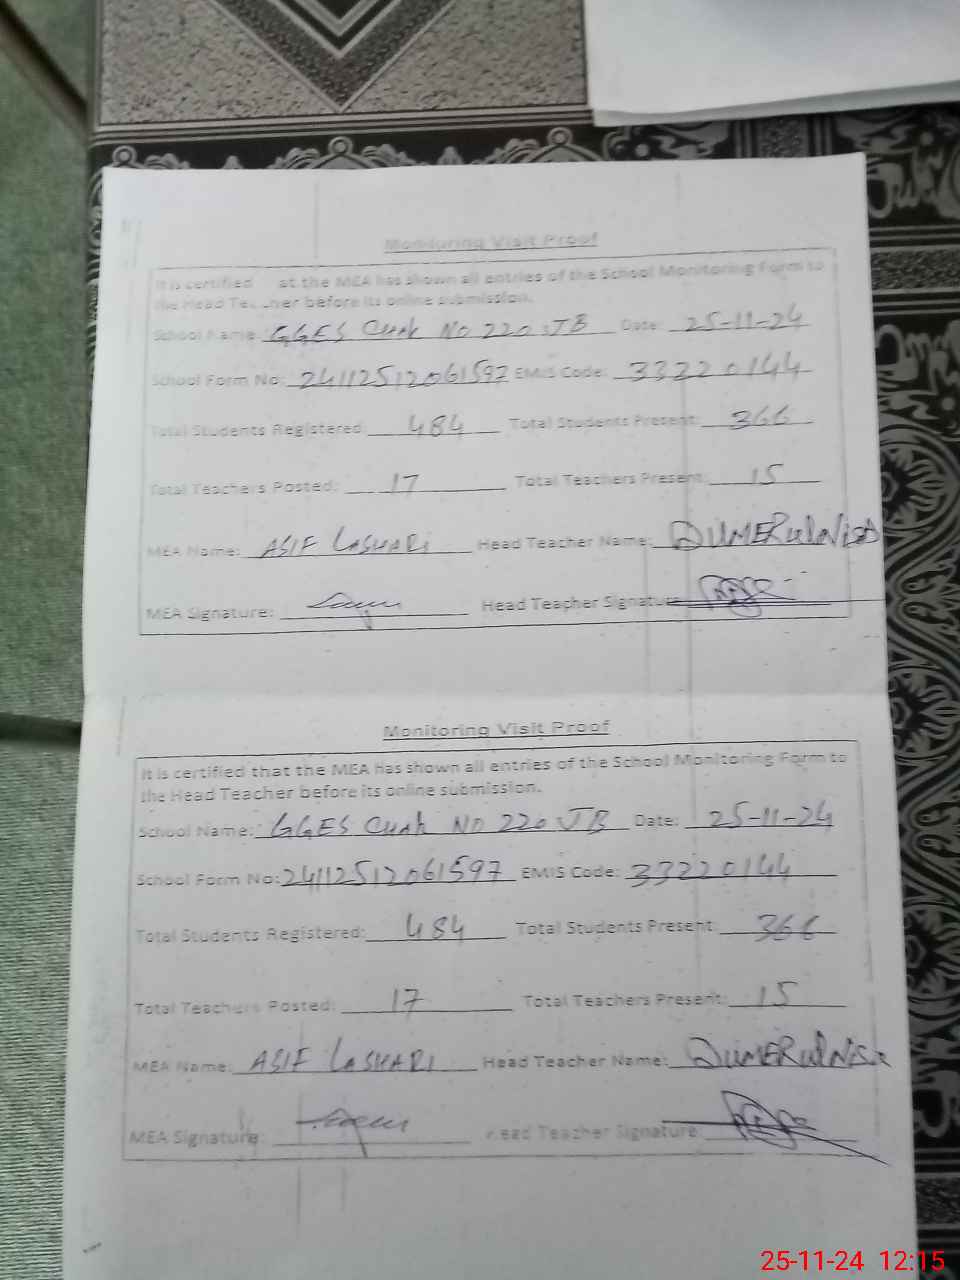 Monitoring Visit Proof
It is certified at the MEA has shown all entries of the School Monitoring Form to
the Head Teacher before its online submission.
School Name: GGES Chak No 220 JB Date: 25-11-24
School Form No: 24112512061597 EMIS Code: 33220144
Total Students Registered: 484 Total Students Present: 366
Total Teachers Posted: 17 Total Teachers Present: 15
MEA Name: ASIF LASHARI Head Teacher Name: QUMERulNisa
MEA Signature: Head Teacher Signature
Monitoring Visit Proof
It is certified that the MEA has shown all entries of the School Monitoring Form to
the Head Teacher before its online submission.
School Name: GGES Chak No 220 JB Date: 25-11-24
School Form No: 24112512061597 EMIS Code: 33220144
Total Students Registered: 484 Total Students Present: 366
Total Teachers Posted: 17 Total Teachers Present: 15
MEA Name: ASIF LASHARI Head Teacher Name: QUMERulNisa
MEA Signature: Head Teacher Signature
25-11-24 12:15